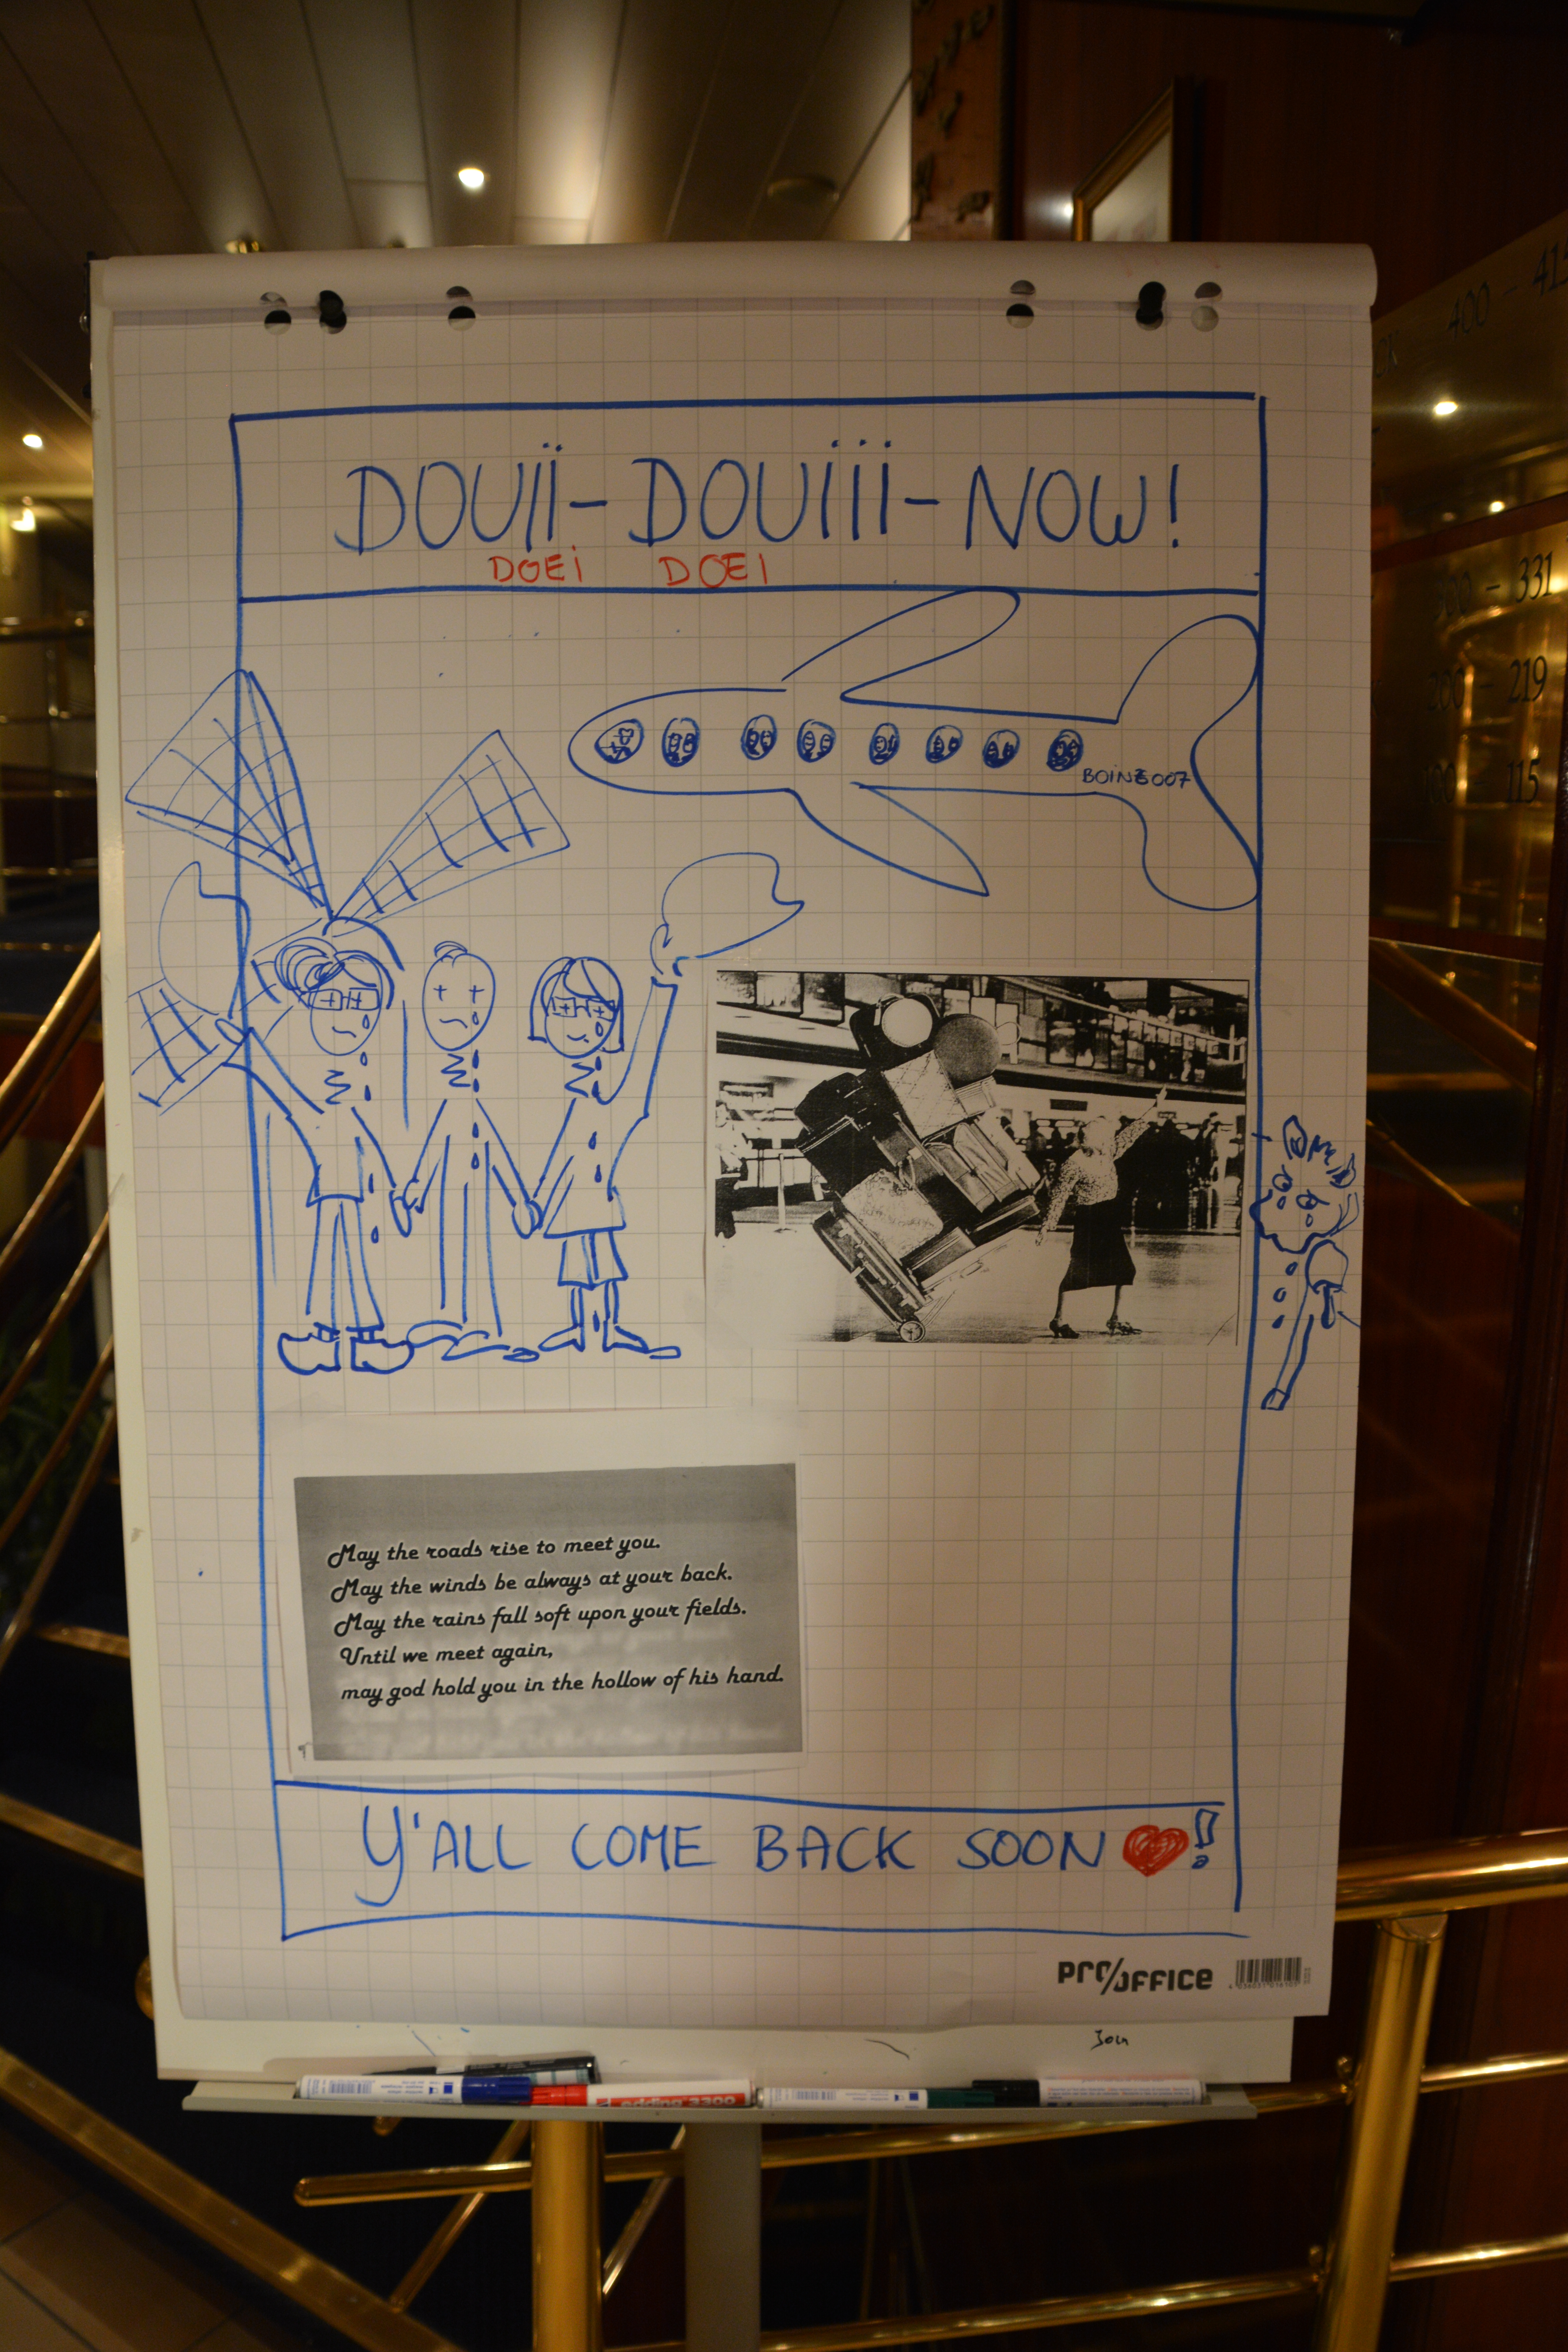 DOUïï-DOUiii-NOW!
DOEi DOEI
BOING007
May the roads rise to meet you.
May the winds be always at your back.
May the rains fall soft upon your fields.
Until we meet again,
may god hold you in the hollow of his hand.
Y'ALL COME BACK SOON !
PRO/OFFICE
edding 3300
400 - 415
300 - 331
200 - 219
100 - 115